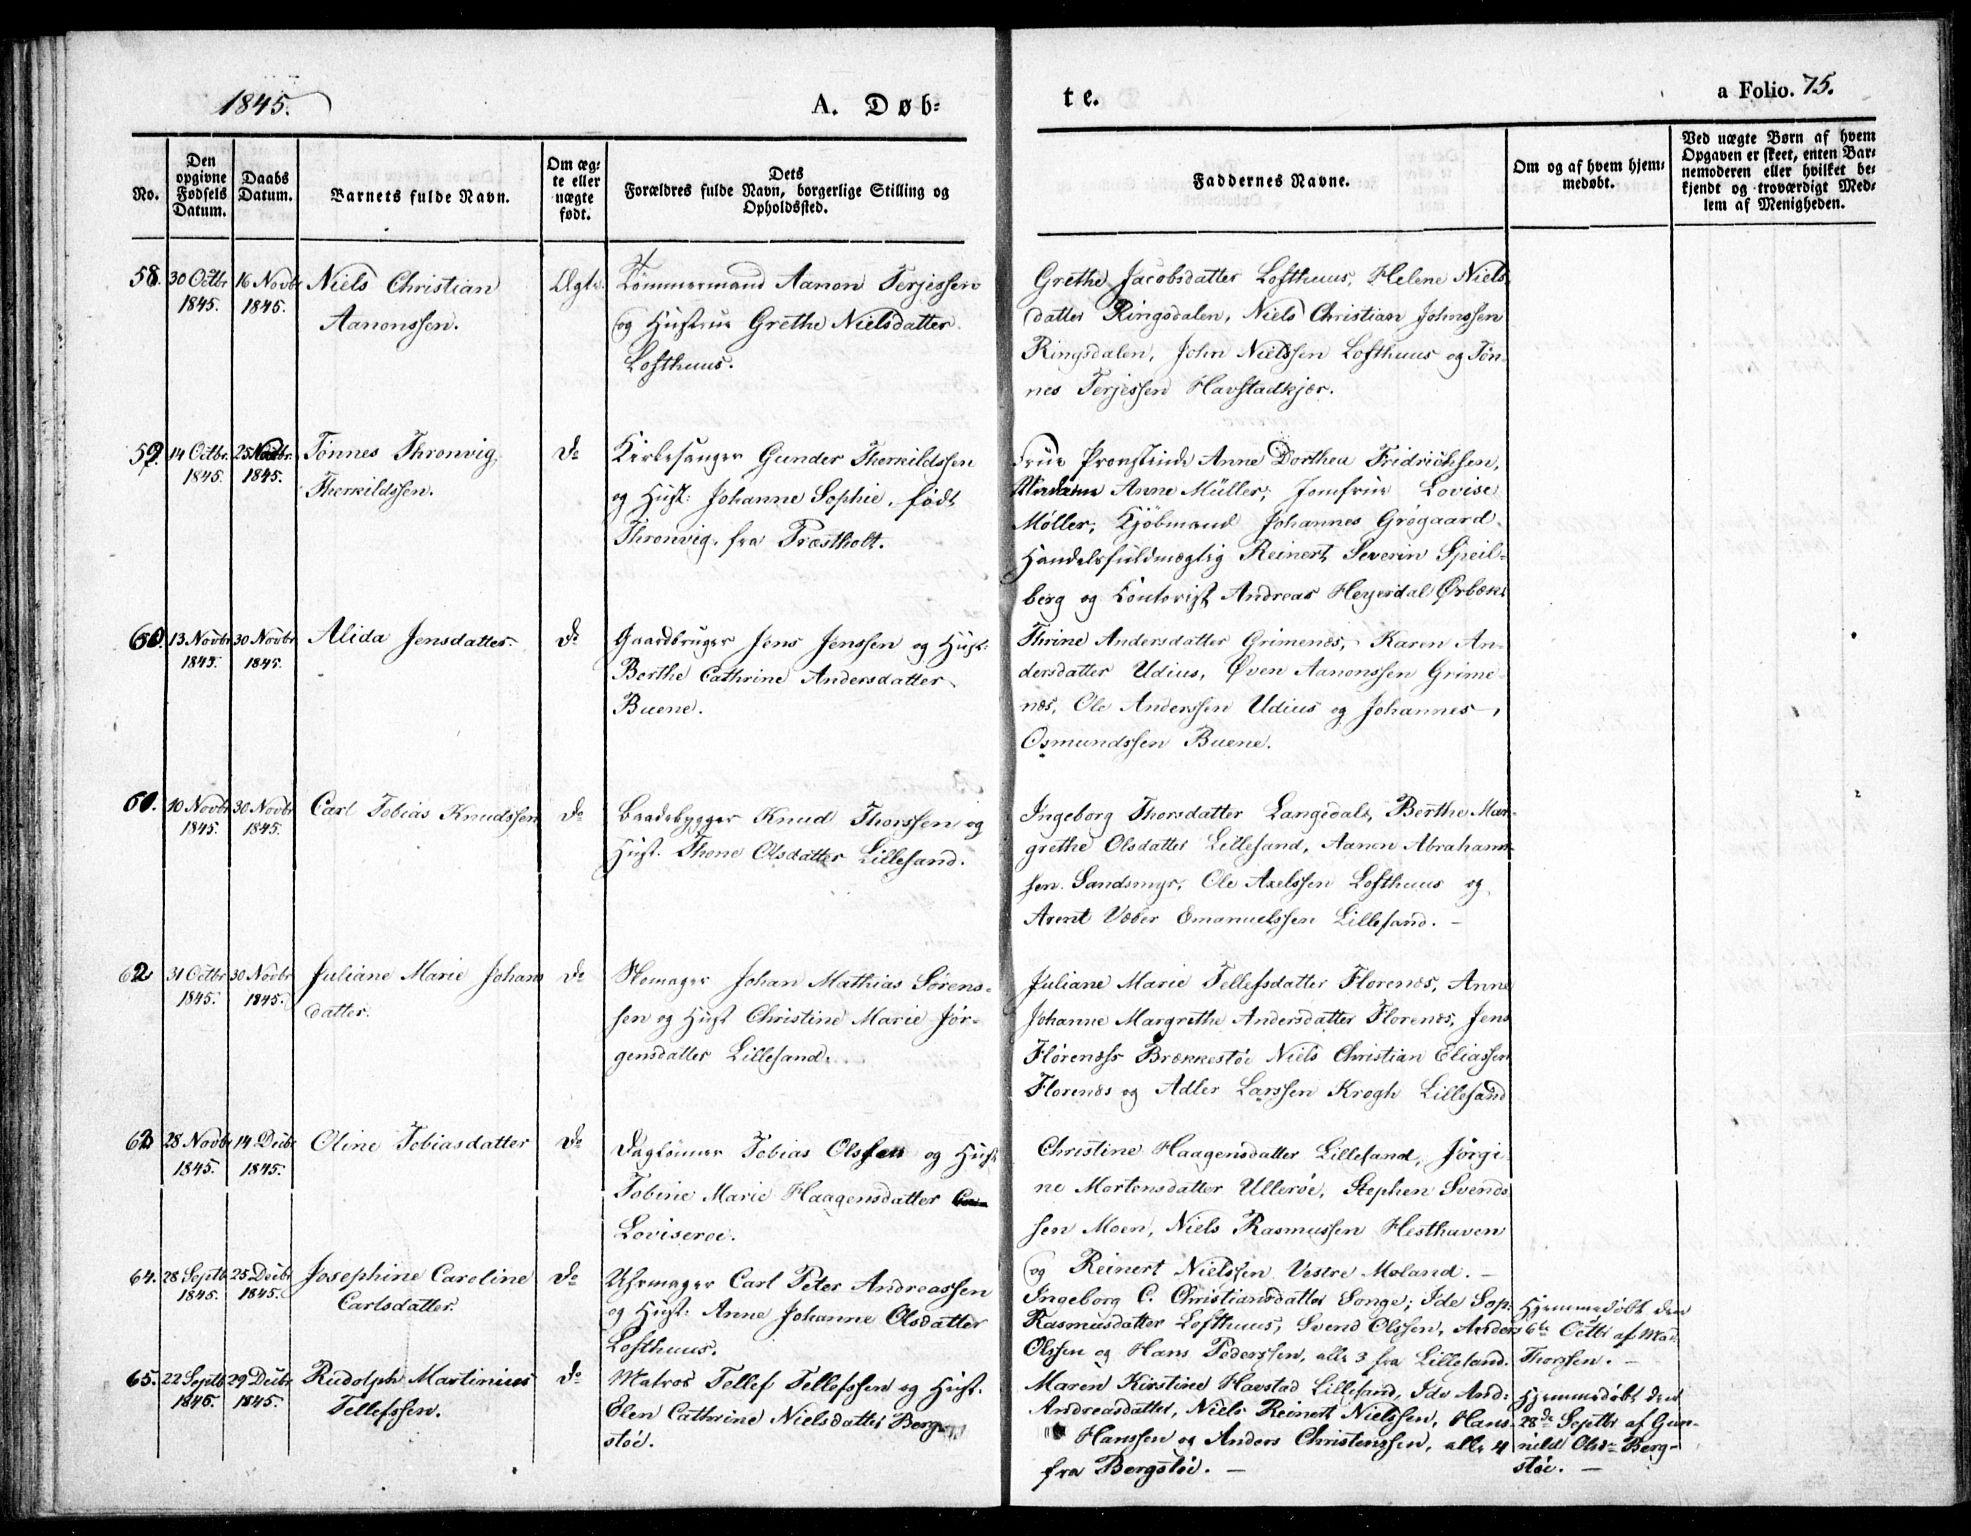 1845.
A. Døb-
te.
a Folio. 75.
No.
Den
opgivne
Fødsels
Datum.
Daabs
Datum.
Barnets fulde Navn.
Om æg-
te eller
uægte
født.
Dets
Forældres fulde Navn, borgerlige Stilling og
Opholdssted.
Faddernes Navne.
Om og af hvem hjem-
medøbt.
Ved uægte Børn af hvem
Opgaven er skeet, enten Bar-
nemoderen eller hvilket be-
kjendt og troværdigt Med-
lem af Menigheden.
58. 30 Octbr 1845. 16 Novbr 1845.
Niels Christian
Aanonssen.
Ægte.
Tømmermand Aanon Terjessen
og Hustrue Grethe Nielsdatter
Lofthuus.
Grethe Jacobsdatter Lofthuus, Helene Niels
datter Ringsdalen, Niels Christian Johnssen
Ringsdalen, John Nielssen Lofthuus og Tøn-
nes Terjessen Havstadkjær.
59. 14 Octbr. 1845. 25 Novbr. 1845.
Tønnes Thronvig
Therkildssen.
do
Kirkesanger Gunder Therkildssen
og Hust: Johanne Sophie, født
Thronvig. fra Præstholt.
Frue Provstinde Anne Dorthea Fridrichsen,
Madame Anne Müller, Jomfrue Lovise
Møller, Kjøbmand Johannes Grøgaard
Handelsfuldmægtig Reinert Severin Speil-
berg og Contorist Andreas Heyerdal Ørbæk.
60. 13 Novbr 1845. 30 Novbr 1845.
Alida Jensdatter.
do
Gaardbruger Jens Jenssen og Hust:
Berthe Cathrine Andersdatter
Buene.
Thrine Andersdatter Grimenæs, Karen An-
dersdatter Udius, Øven Aanonssen Grime-
næs, Ole Anderssen Udius og Johannes
Osmundssen Buene.
61. 10 Novbr 1845. 30 Novbr 1845.
Carl Tobias Knudssen
do
Baadebygger Knud Thorssen og
Hust. Thone Olsdatter Lillesand.
Ingeborg Thorsdatter Langedal, Berthe Mar-
grethe Olsdatter Lillesand, Aanon Abraham-
sen Sandsmyr, Ole Axelssen Lofthuus og
Arent Væber Emanuelssen Lillesand. –
62 31 Octbr 1845. 30 Novbr 1845.
Juliane Marie Johans
datter.
do
Skomager Johan Mathias Sørens-
sen og Hust Christine Marie Jør-
gensdatter Lillesand.
Juliane Marie Tellefsdatter Florenæs, Anne
Johanne Margrethe Andersdatter Florenæs, Jens
Florenæss Brækkestøe Niels Christian Eliassen
Florenæs og Adler Larssen Krogh Lillesand
63 28 Novbr 1845. 14 Decbr 1845.
Oline Tobiasdatter
do
Dagleiner Tobias Olssen og Hust
Tobine Marie Haagensdatter
Loviseroe.
Christine Haagensdatter Lillesand, Jørgi-
ne Mortensdatter Ullerøe, Stephen Svends
sen Moen, Niels Rasmussen Hesthaven
og Reinert Nielssen Vestre Moland. –
64. 28 Septbr 1845. 25 Decbr 1845.
Josephine Caroline
Carlsdatter.
do
Uhrmager Carl Peter Andreassen
og Hust: Anne Johanne Olsdatter
Lofthuus.
Ingeborg C. Christiansdatter Songe, Ide Sop:
Rasmusdatter Lofthuus, Svend Olssen, Anders
Olssen og Hans Pederssen, alle 3 fra Lillesand.
Hjemmedøbt den
6te Octbr af Mad:
Thorssen. –
65. 22 Septbr 1845. 29 Decbr 1845.
Rudolph Martinius
Tellefssen.
do
Matros Tellef Tellefssen og Hust.
Elen Cathrine Nielsdatter Berg-
støe.
Maren Kirstine Havstad Lillesand, Ide And:
Andreasdatter, Niels Reinert Nielssen, Hans
Hanssen og Anders Christenssen, alle 4
fra Bergstøe. –
Hjemmedøbt den
28de Septbr af Gun-
nild Olsdr Berg-
støe. –